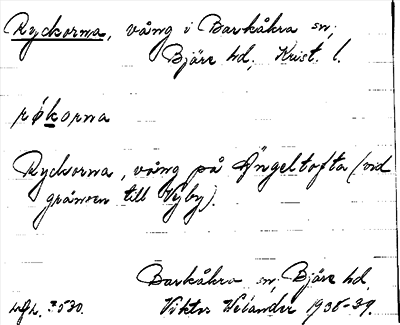 Ryckorna, vång i Barkåkra sn,
Bjäre hd, Krist. l.
røkorna
Ryckorna, vång på Ängeltofta (vid
gränsen till Vyby).
Barkåkra sn, Bjäre hd,
530. Viktor Welander 1938-39.